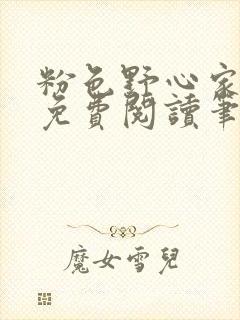 粉色野心家
免費閱讀筆
魔女雪兒